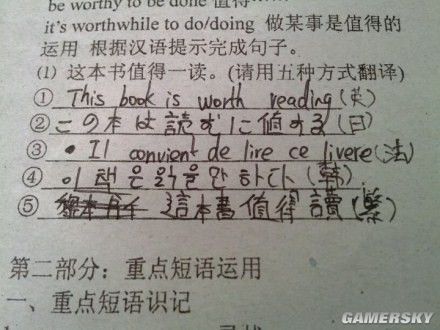 be worthy to be done 值得
it's worthwhile to do/doing 做某事是值得的
运用 根据汉语提示完成句子。
(1) 这本书值得一读。(请用五种方式翻译)
① This book is worth reading (英)
② この本は読むに値する (日)
③ • Il convient de lire ce livere (法)
④ 이 책은 읽을만 하다 (韩)
⑤ 這本書值得讀 (繁)
第二部分：重点短语运用
一、重点短语识记
GAMERSKY